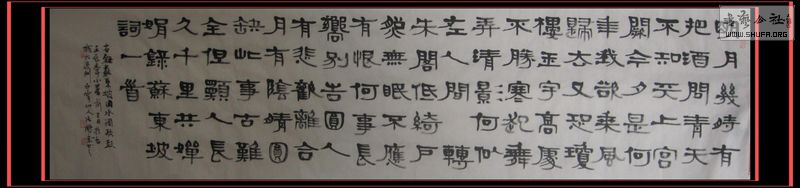 明月幾時有
把酒問青天
不知天上宮
闕今夕是何
年我欲乘風
歸去又恐瓊
樓玉宇高處
不勝寒起舞
弄清景何似
在人間 轉
朱閣低綺戶
照無眠不應
有恨何事長
嚮別旹圓人
有悲歡離合
月有陰晴圓
缺此事古難
全但願人長
久千里共嬋
娟錄蘇東坡
詞一首
書藝公社
WWW.SHUFA.ORG